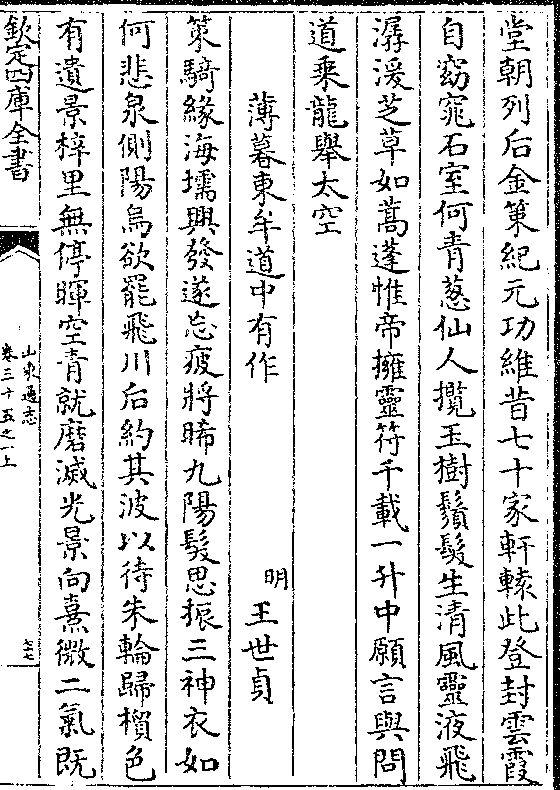 堂朝列后金策紀元功維昔七十家軒轅此登封雲霞
自窈窕石室何青葱仙人攬玉樹鬚髮生清風靈液飛
潺湲芝草如蒿蓬惟帝擁靈符千載一升中願言與問
道乘龍舉太空
薄暮東牟道中有作
明王世貞
策騎緣海壖興發遂忘疲將晞九陽髮思振三神衣如
何悲泉側陽烏欲罷飛川后約其波以待朱輪歸檟色
有遺景梓里無停暉空青就磨滅光景向熹微二氣既
欽定四庫全書
山東通志
卷三十五之一上
七七